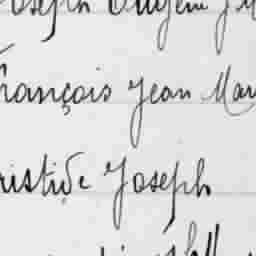 Joseph Eugène
François Jean Mar
ristide Joseph